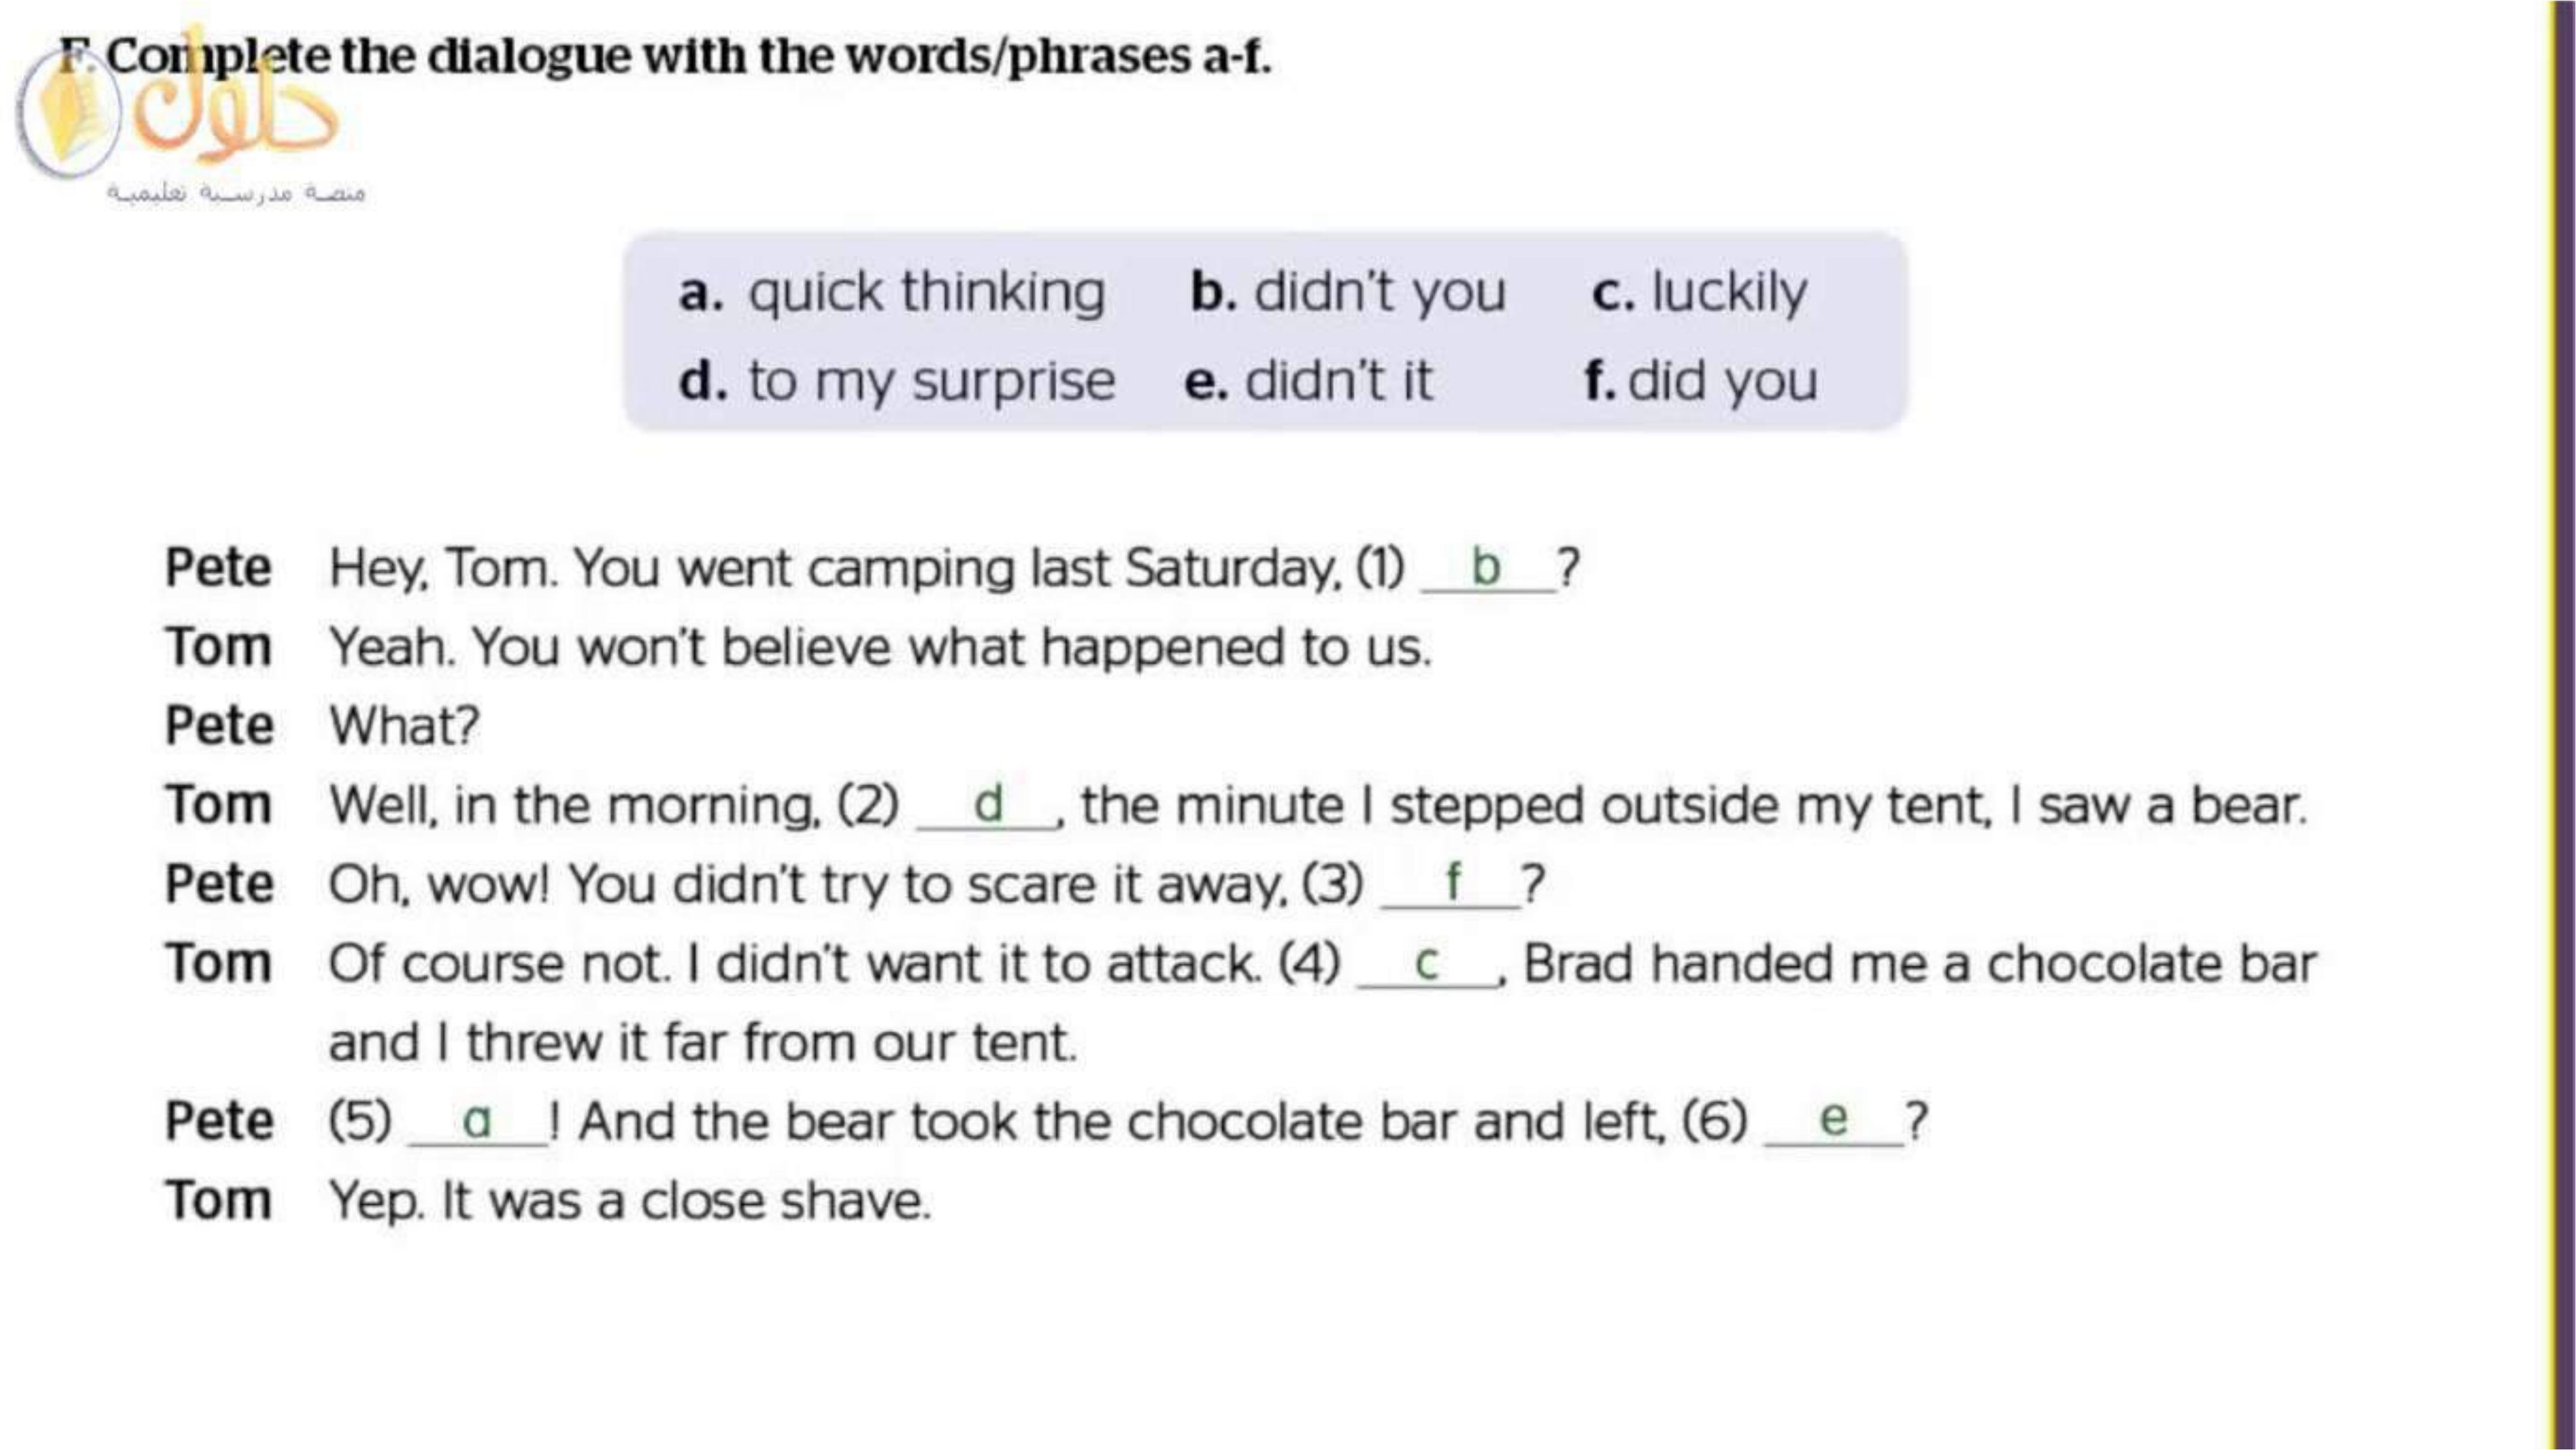 F. Complete the dialogue with the words/phrases a-f.
حلول
منصة مدرسية تعليمية
a. quick thinking b. didn't you c. luckily
d. to my surprise e. didn't it f. did you
Pete Hey, Tom. You went camping last Saturday, (1) b ?
Tom Yeah. You won't believe what happened to us.
Pete What?
Tom Well, in the morning, (2) d , the minute I stepped outside my tent, I saw a bear.
Pete Oh, wow! You didn't try to scare it away, (3) f ?
Tom Of course not. I didn't want it to attack. (4) c , Brad handed me a chocolate bar
and I threw it far from our tent.
Pete (5) a ! And the bear took the chocolate bar and left, (6) e ?
Tom Yep. It was a close shave.